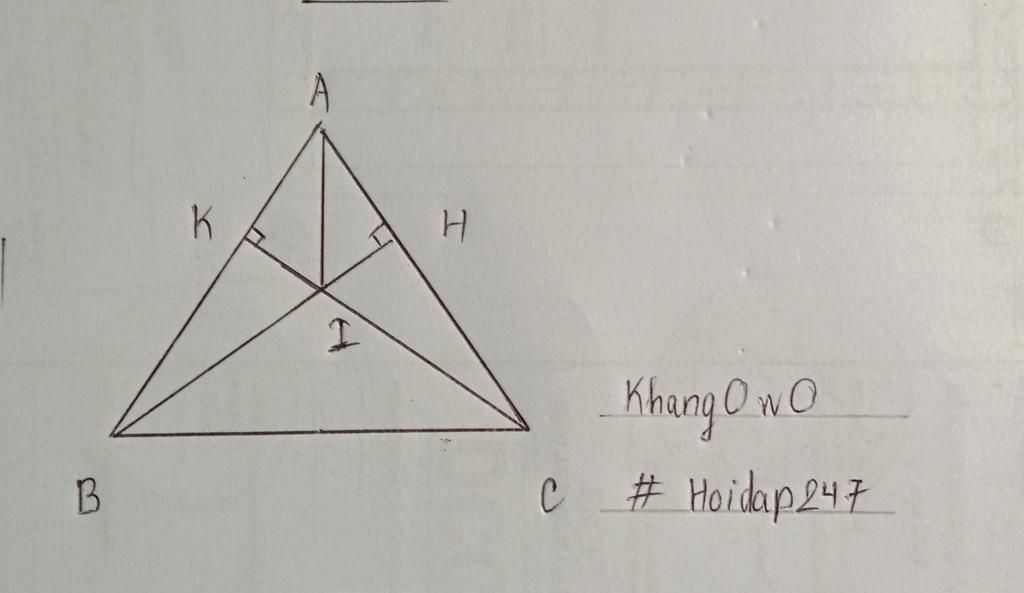 A
K
H
I
B
C
KhangOwO
# Hoidap247